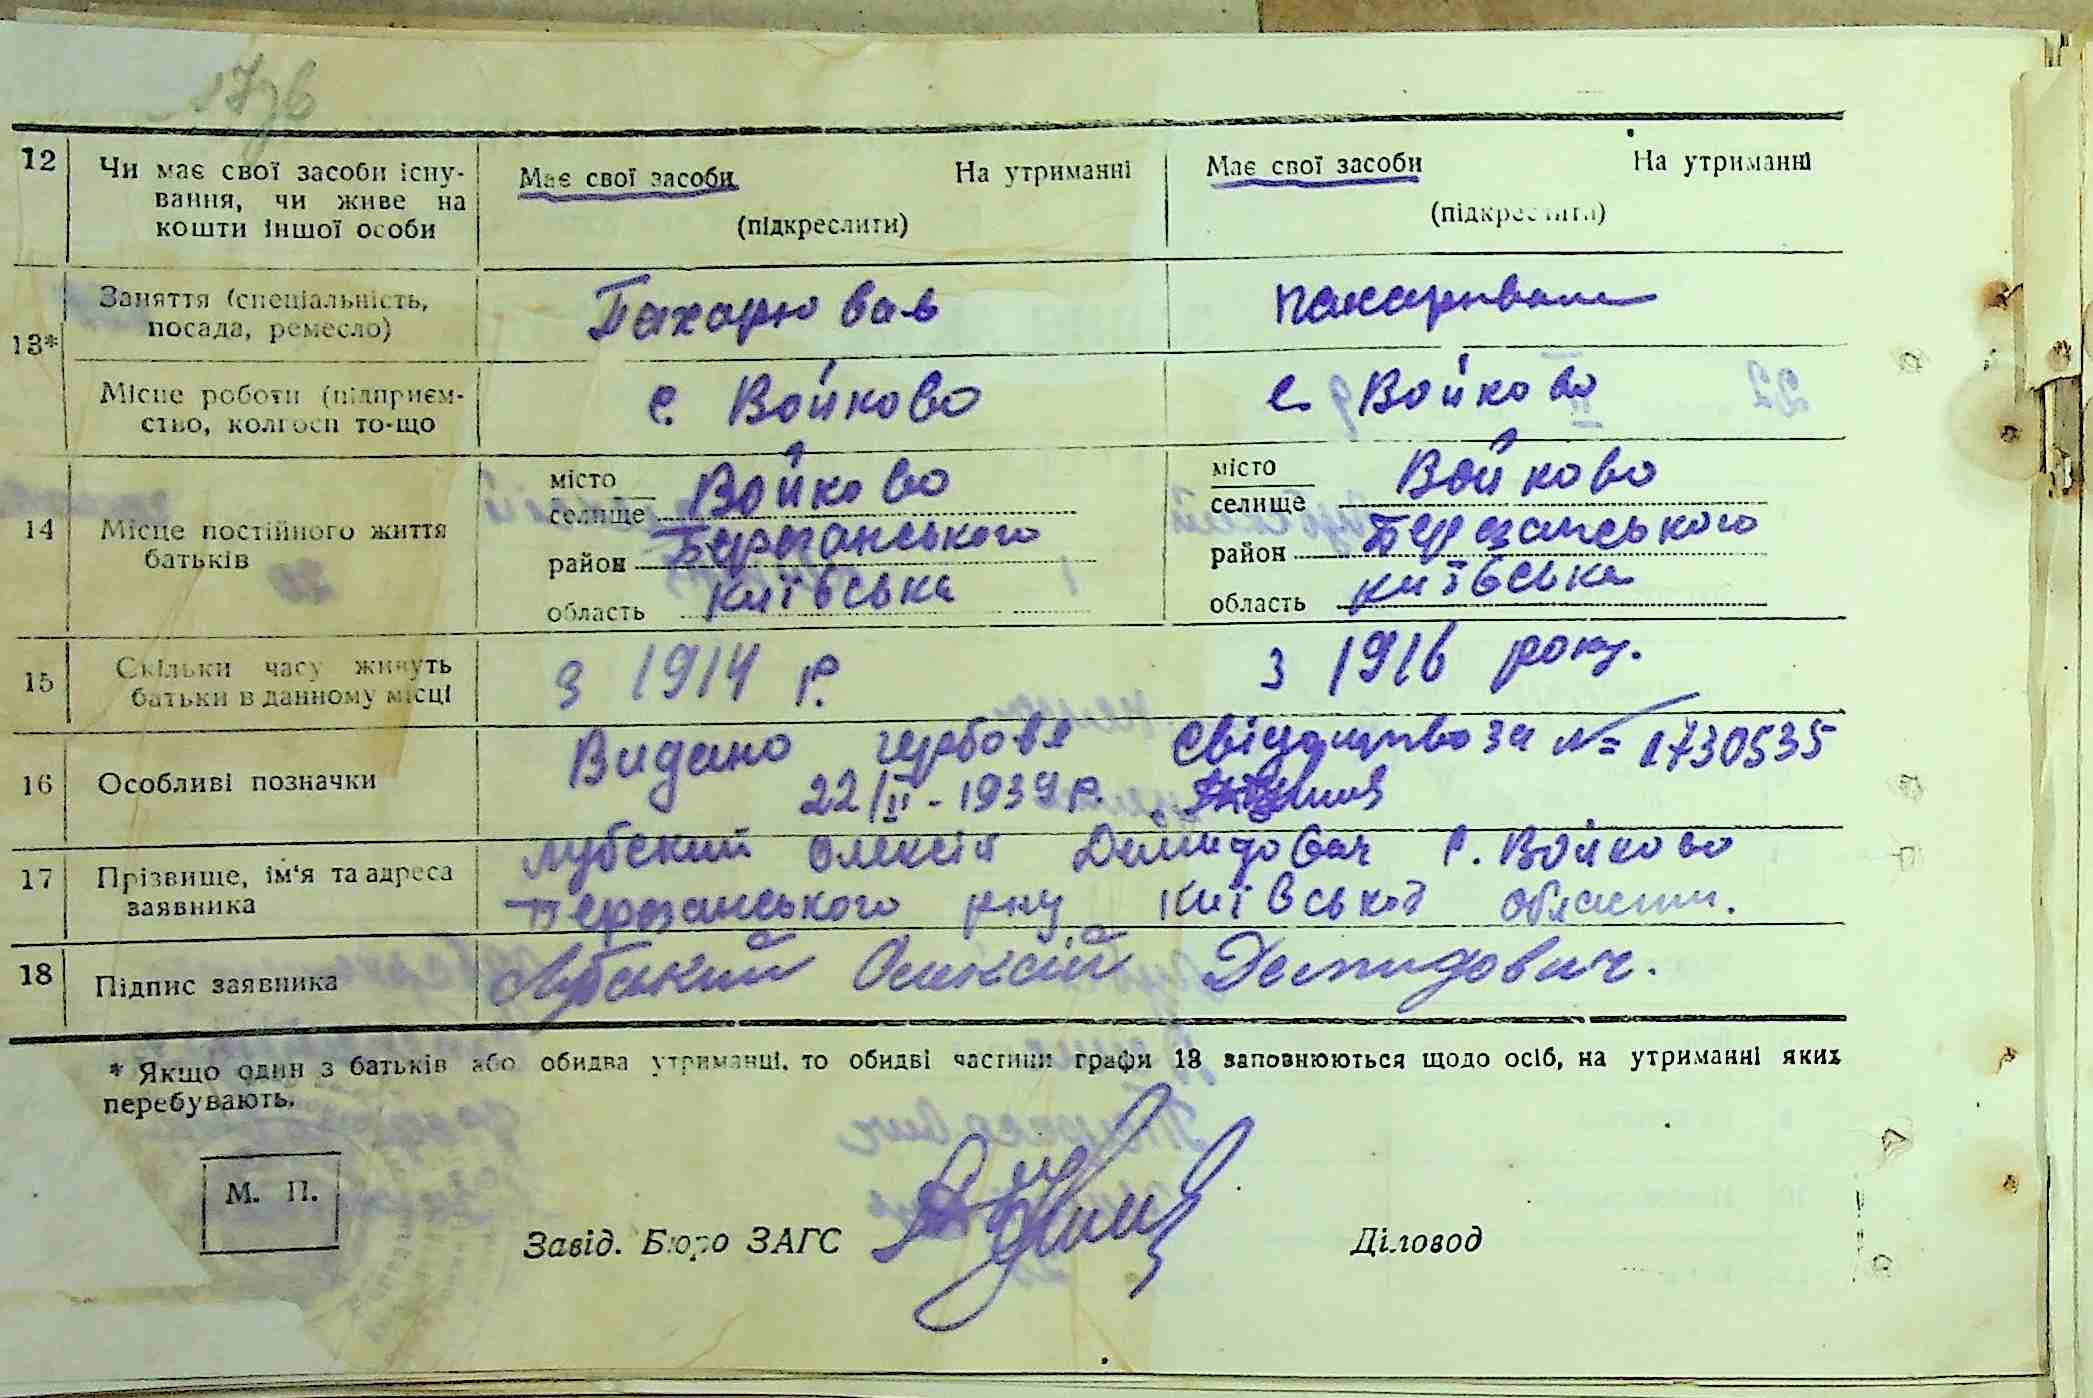 12 Чи має свої засоби існу-
вання, чи живе на
кошти іншої особи
Має свої засоби На утриманні
(підкреслити)
Має свої засоби На утриманні
(підкреслити)
13*
Заняття (спеціальність,
посада, ремесло)
Місце роботи (підприєм-
ство, колгосп то-що
с. Войково
с. Войково
14 Місце постійного життя
батьків
місто
селище Войково
район Березанського
область київська
місто
селище Войково
район Березанського
область київська
15 Скільки часу живуть
батьки в данному місці
з 1914 р.
з 1916 року.
16 Особливі позначки
Видано гербове свідоцтво за № 1730535
22/II - 1939 р.
17 Прізвище, ім'я та адреса
заявника
Лубский Олексій Демидович с. Войково
Березанського р-ну Київської области.
18 Підпис заявника
Лубский Олексій Демидович.
* Якщо один з батьків або обидва утриманці, то обидві частини графи 13 заповнюються щодо осіб, на утриманні яких
перебувають.
М. П.
Завід. Бюро ЗАГС
Діловод